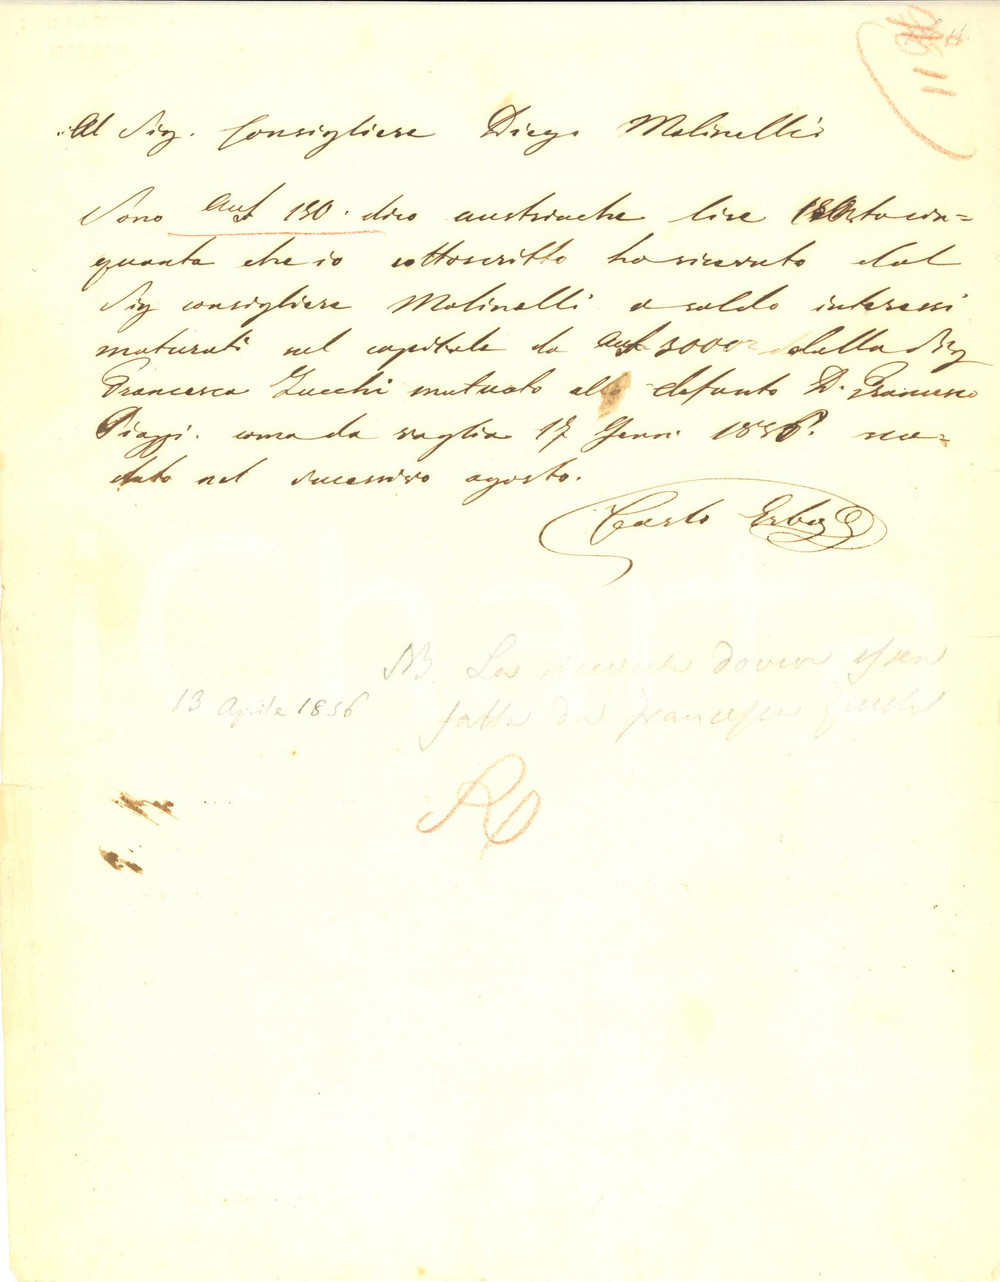 11
Al Sig. Consigliere Diego Molinelli
Sono Aus£ 150. dico austriache lire centocin=
quanta che io sottoscritto ho ricevuto dal
Sig consigliere Molinelli a saldo interessi
maturati nel capitale da Aus£ 3000 dalla Sig
Francesca Zucchi mutuato al defunto D. Francesco
Piazzi. come da vaglia 17 Genn. 1856. sca=
duto nel successivo agosto.
Carlo Erba
NB. La ricevuta doveva essere
13 Aprile 1856 fatta da Francesca Zucchi